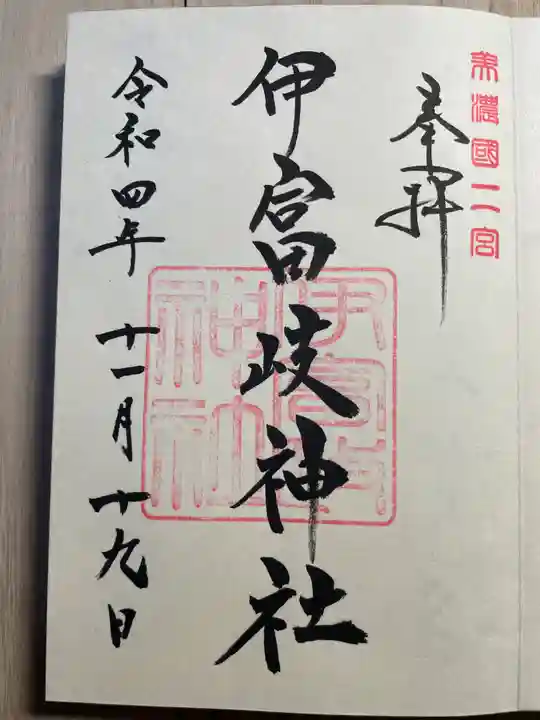 美濃國二宮
奉拝
伊富岐神社
伊富岐神社
令和四年 十一月十九日